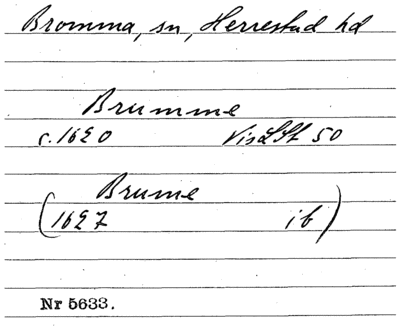 Bromma, sn, Herrestad hd
Brumme
c. 1620 VisLSt 50
(Brume
1627 ib)
Nr 5633.